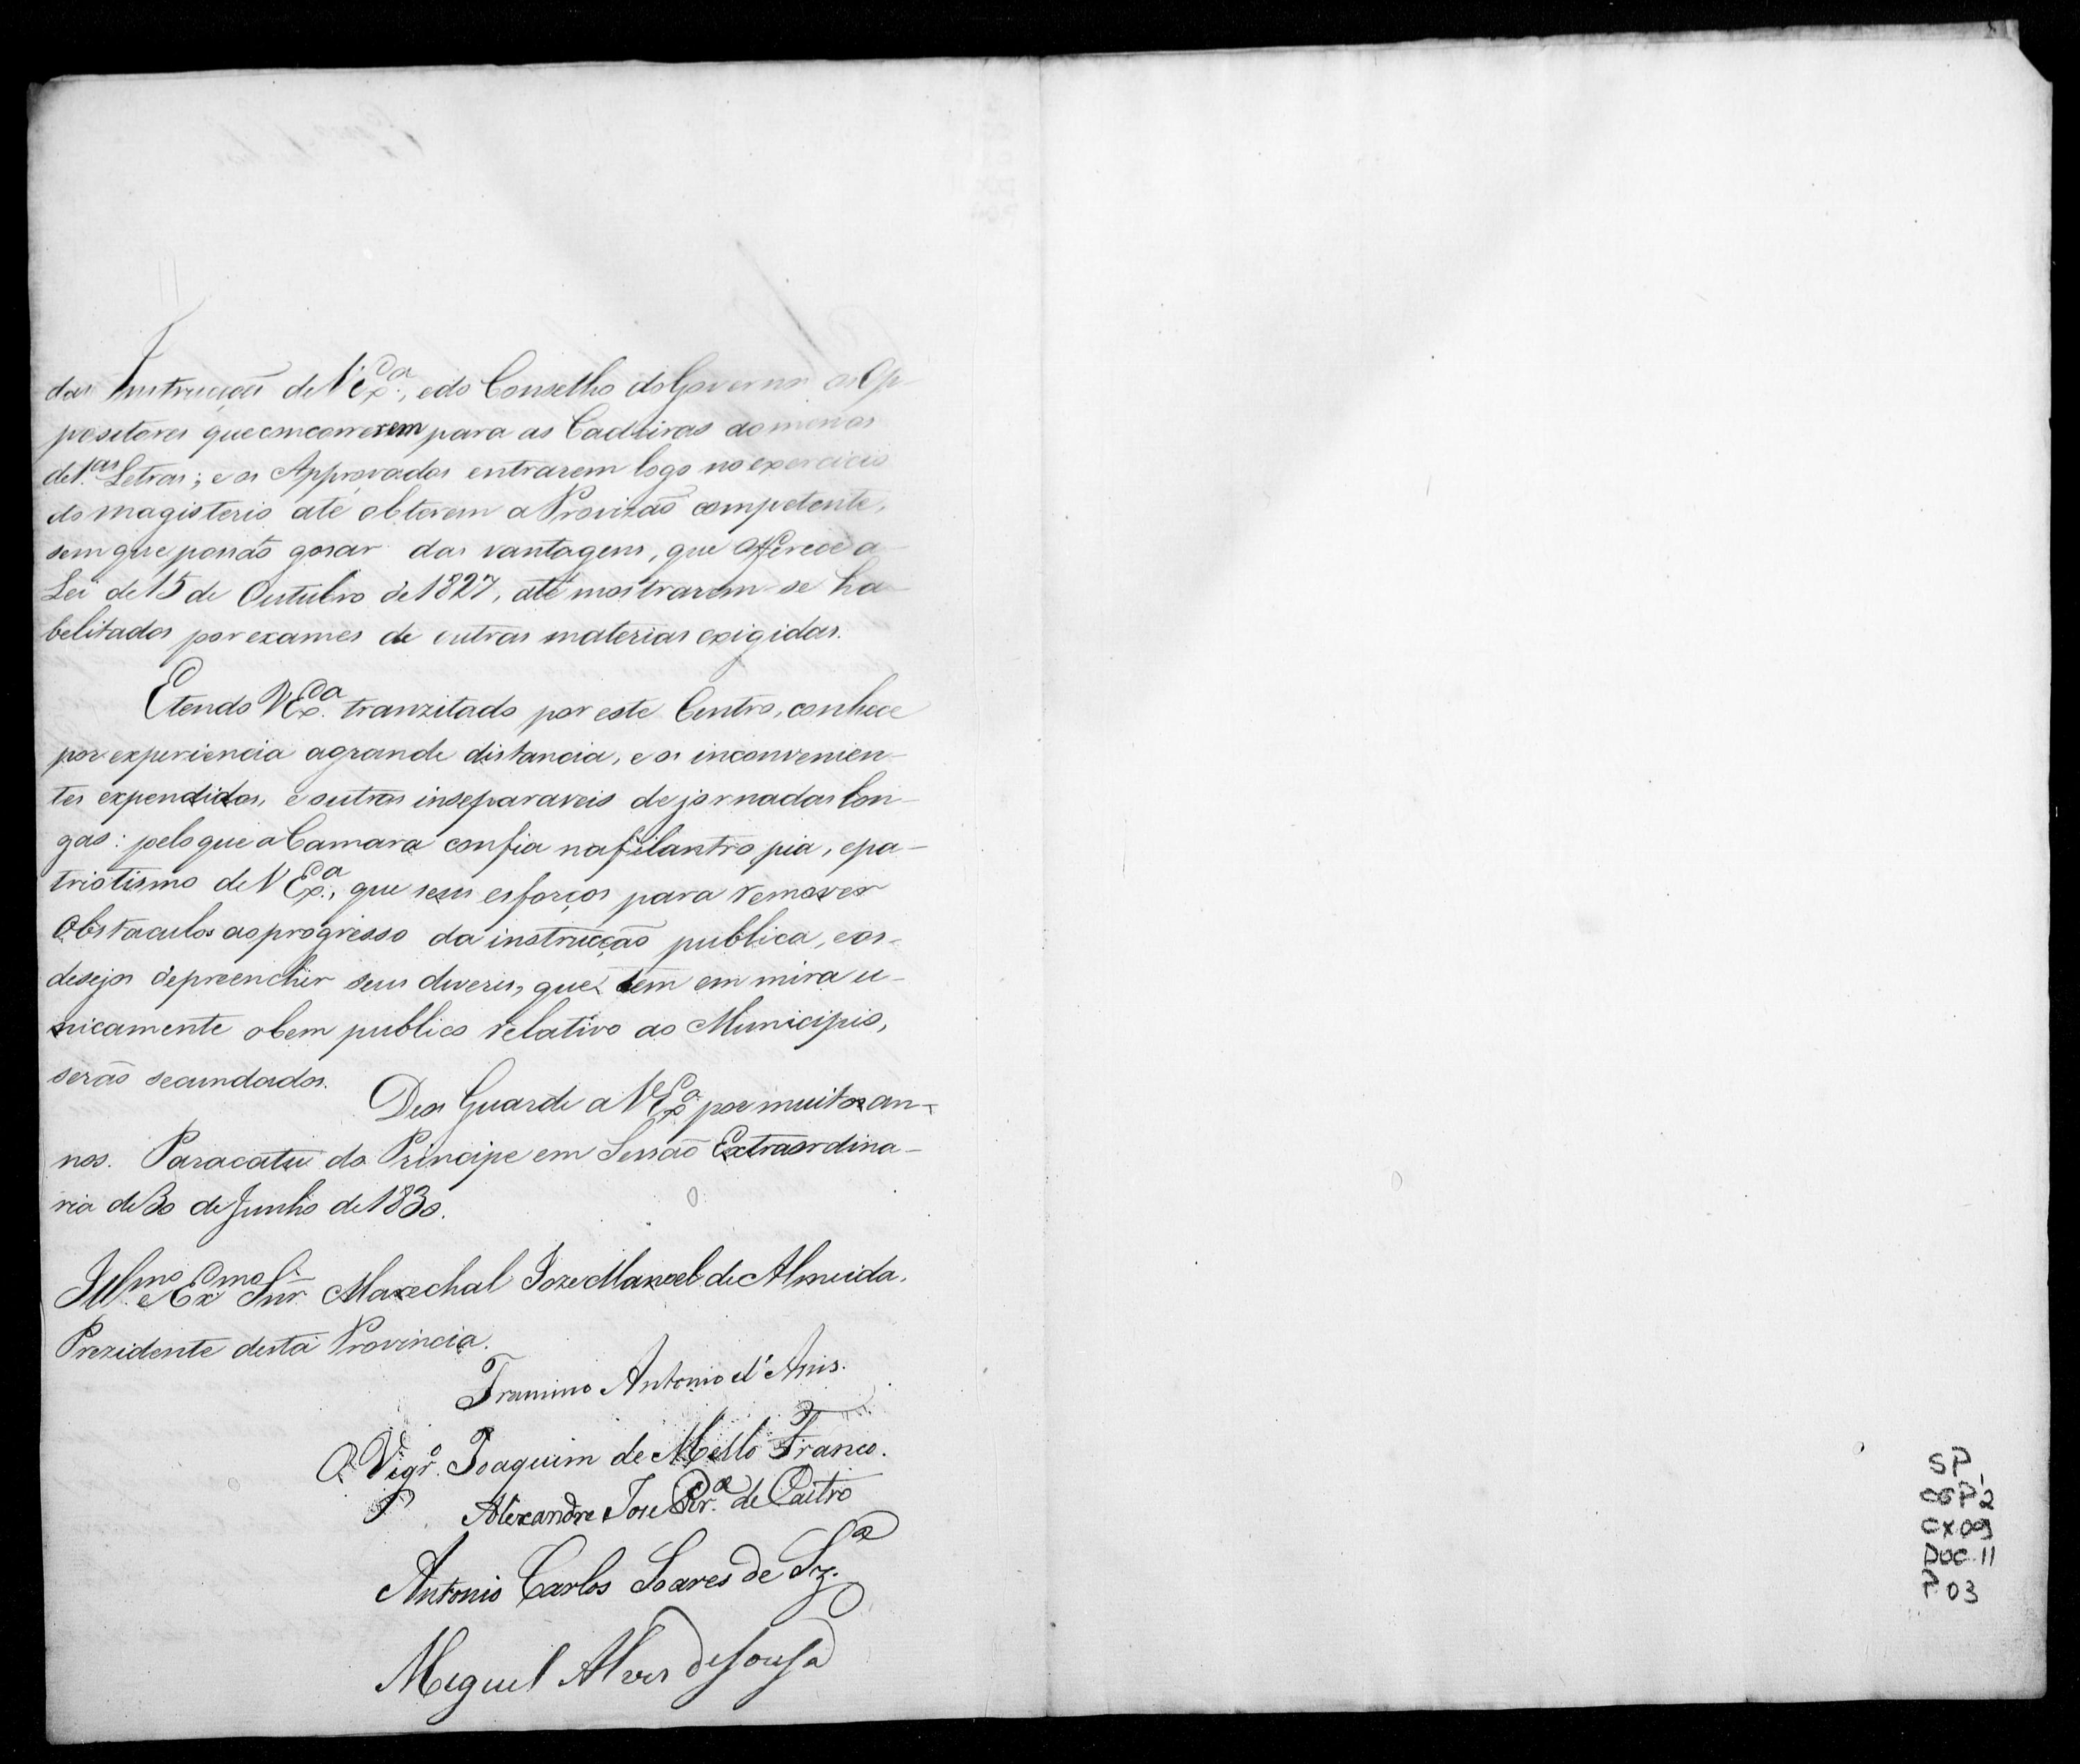 das Instrucçoẽs de V Ex.ª, e do Conselho do Governo os Op-
positores que concorrerem para as Cadeiras ao menos
de 1.as Letras; e os Approvados entrarem logo no exercicio
do magisterio até obterem a Provizaõ competente,
sem que possaõ gosar das vantagens, que offerece a
Lei de 15 de Outubro de 1827, até mostrarem-se ha-
belitados por exames de outras materias exigidas.
E tendo V Ex.ª tranzitado por este Centro, conhece
por experiencia a grande distancia, e os inconvenien-
tes expendidos, e outros inseparaveis de jornadas lon-
gas: pelo que a Camara confia na filantropia, e pa-
triotismo de V Ex.ª, que seus esforços para remover
obstaculos ao progresso da instrucçaõ publica, e os
desejos de preencher seus deveres, que tem em mira u-
nicamente o bem publico relativo ao Municipio,
seraõ secundados.
Deos Guarde a V Ex.ª por muitos an-
nos. Paracatu do Principe em Sessaõ Extraordina-
ria de 30 de Junho de 1830.
Ill.mo e Ex.mo Snr. Marechal Joze Manoel de Almeida,
Prezidente desta Provincia.
Antonio d'Assis.
O Vigr.º Joaquim de Mello Franco.
Alexandre Jose Per.ª de Castro
Antonio Carlos Soares de Sz.ª
Miguel Alves de Sousa
SP
CX 09
DOC 11
P 03